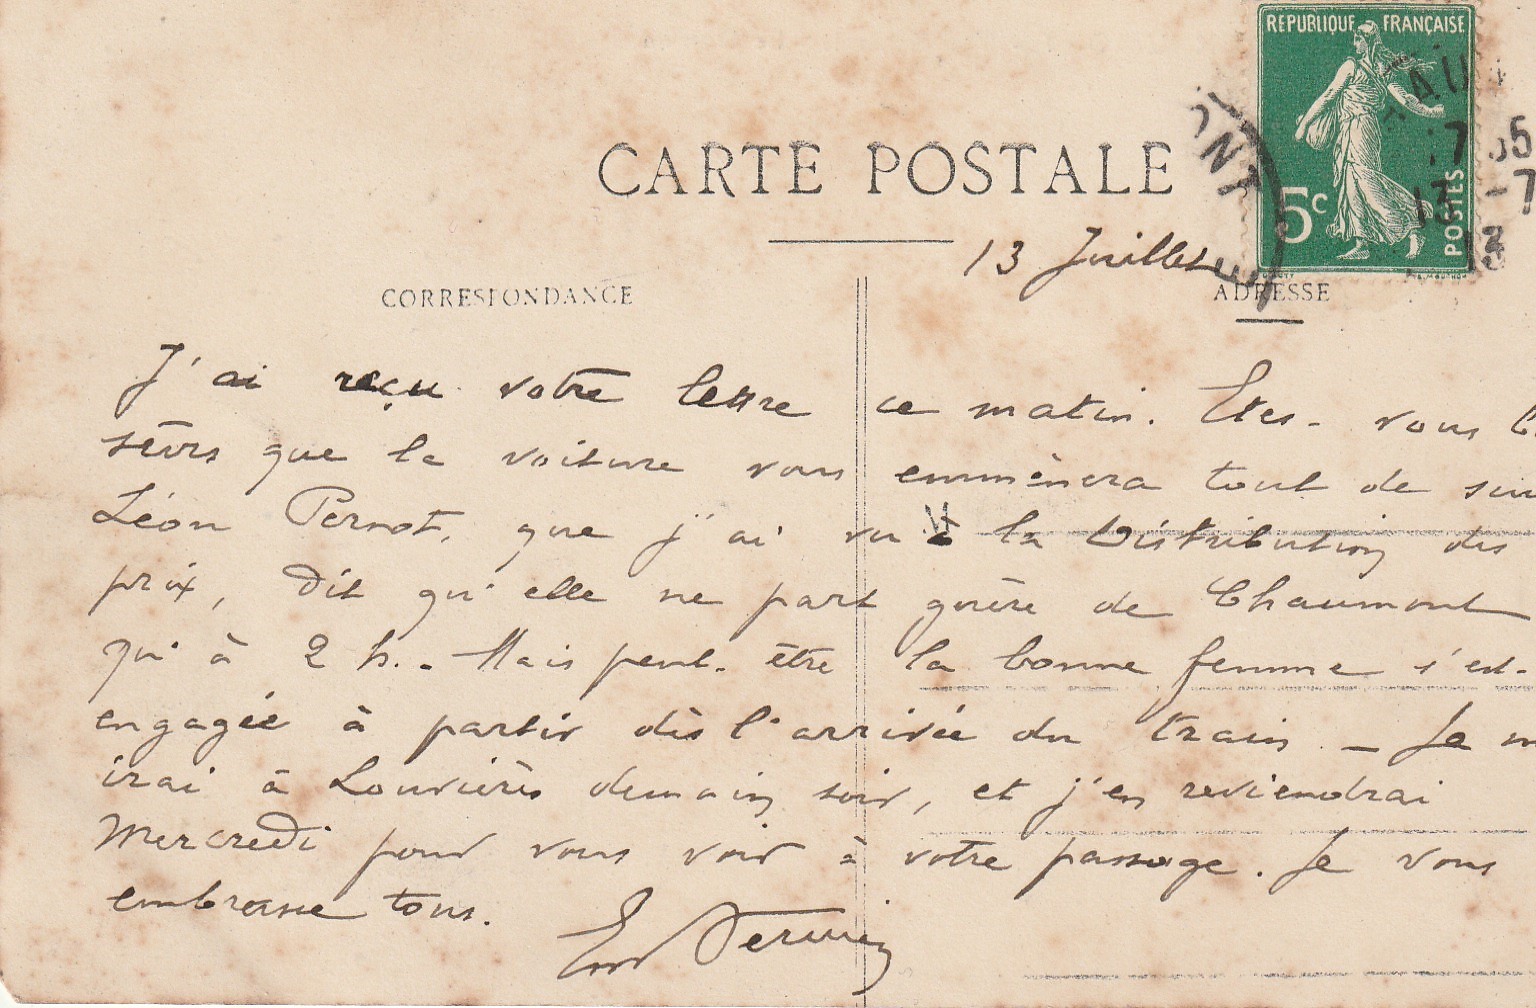 REPUBLIQUE FRANÇAISE
5c
POSTES
CARTE POSTALE
13 Juillet
CORRESPONDANCE
ADRESSE
J'ai reçu votre lettre ce matin. Etes-vous
sûrs que la voiture vous emmènera tout de
Léon Pernot, que j'ai vu à la Distribution des
prix, dit qu'elle ne part guère de Chaumont
qu'à 2 h. - Mais peut-être la bonne femme s'est-
engagée à partir dès l'arrivée du train. - Je
irai à Louvières demain soir, et j'en reviendrai
Mercredi pour vous voir à votre passage. Je vous
embrasse tous.